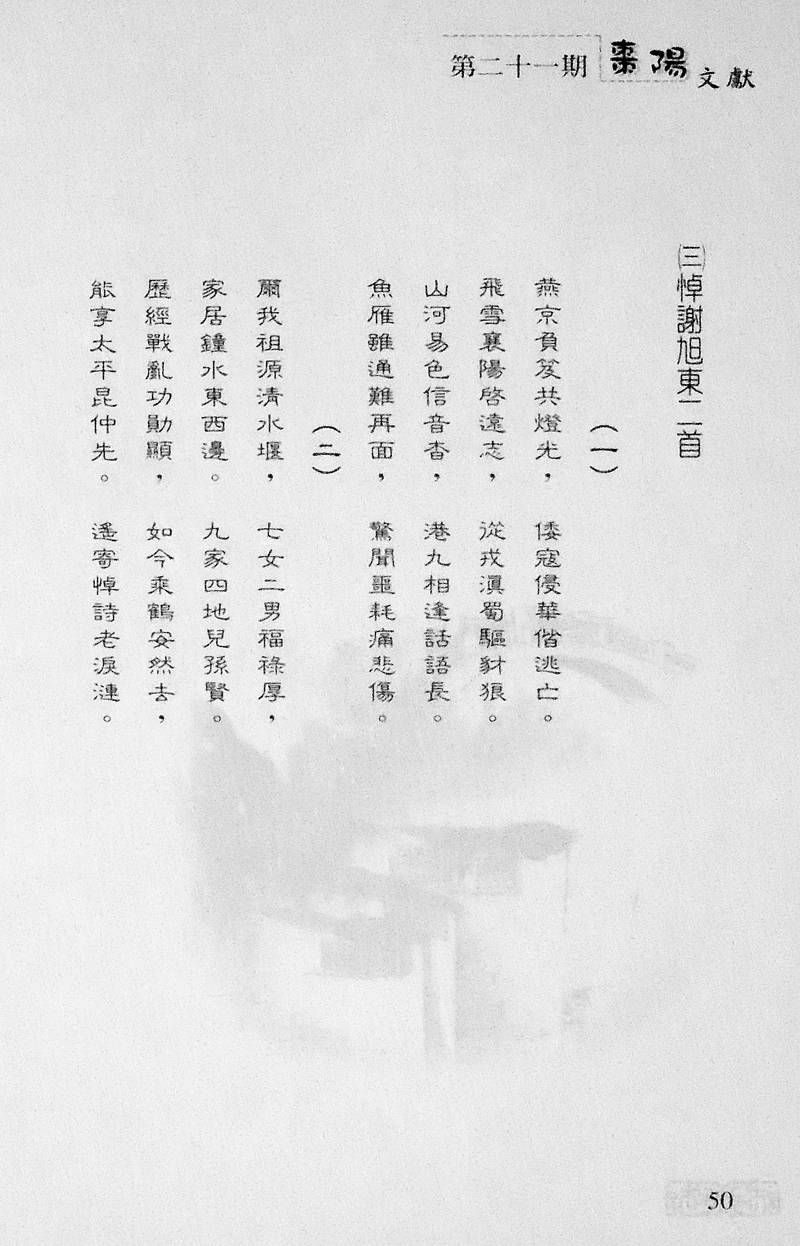 第二十一期 棗陽文獻
㈢悼謝旭東二首
(一)
燕京負笈共燈光，倭寇侵華偕逃亡。
飛雪襄陽啓遠志，從戎滇蜀驅豺狼。
山河易色信音杳，港九相逢話語長。
魚雁雖通難再面，驚聞噩耗痛悲傷。
(二)
爾我祖源清水堰，七女二男福祿厚，
家居鐘水東西邊。九家四地兒孫賢。
歷經戰亂功勛顯，如今乘鶴安然去，
能享太平昆仲先。遙寄悼詩老淚漣。
50